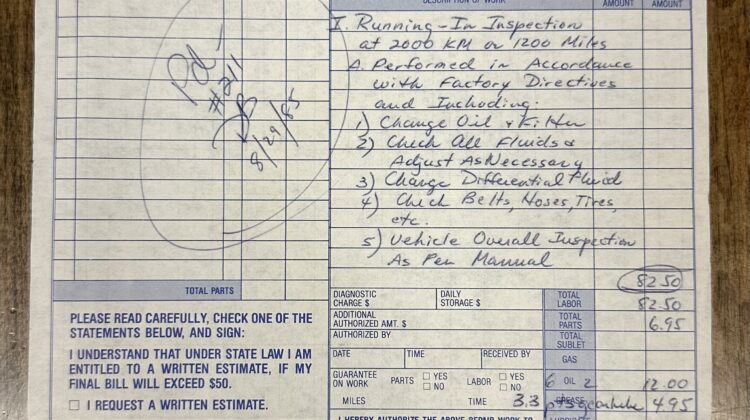 DESCRIPTION OF WORK
AMOUNT
AMOUNT
I. Running-In Inspection
at 2000 KM or 1200 Miles
A. Performed in Accordance
with Factory Directives
and Including:
1) Change Oil & Filter
2) Check All Fluids &
Adjust As Necessary
3) Change Differential Fluid
4) Check Belts, Hoses, Tires,
etc.
5) Vehicle Overall Inspection
As Per Manual
82.50
Pd-
#211
8/29/85
TOTAL PARTS
PLEASE READ CAREFULLY, CHECK ONE OF THE
STATEMENTS BELOW, AND SIGN:
I UNDERSTAND THAT UNDER STATE LAW I AM
ENTITLED TO A WRITTEN ESTIMATE, IF MY
FINAL BILL WILL EXCEED $50.
I REQUEST A WRITTEN ESTIMATE.
DIAGNOSTIC CHARGE $
DAILY STORAGE $
TOTAL LABOR 82.50
ADDITIONAL AUTHORIZED AMT. $
TOTAL PARTS 6.95
AUTHORIZED BY
TOTAL SUBLET
DATE TIME RECEIVED BY
GAS
GUARANTEE ON WORK PARTS YES NO LABOR YES NO
6 OIL 2 12.00
MILES TIME 3.3
GREASE 4.95
I HEREBY AUTHORIZE THE ABOVE REPAIR WORK TO